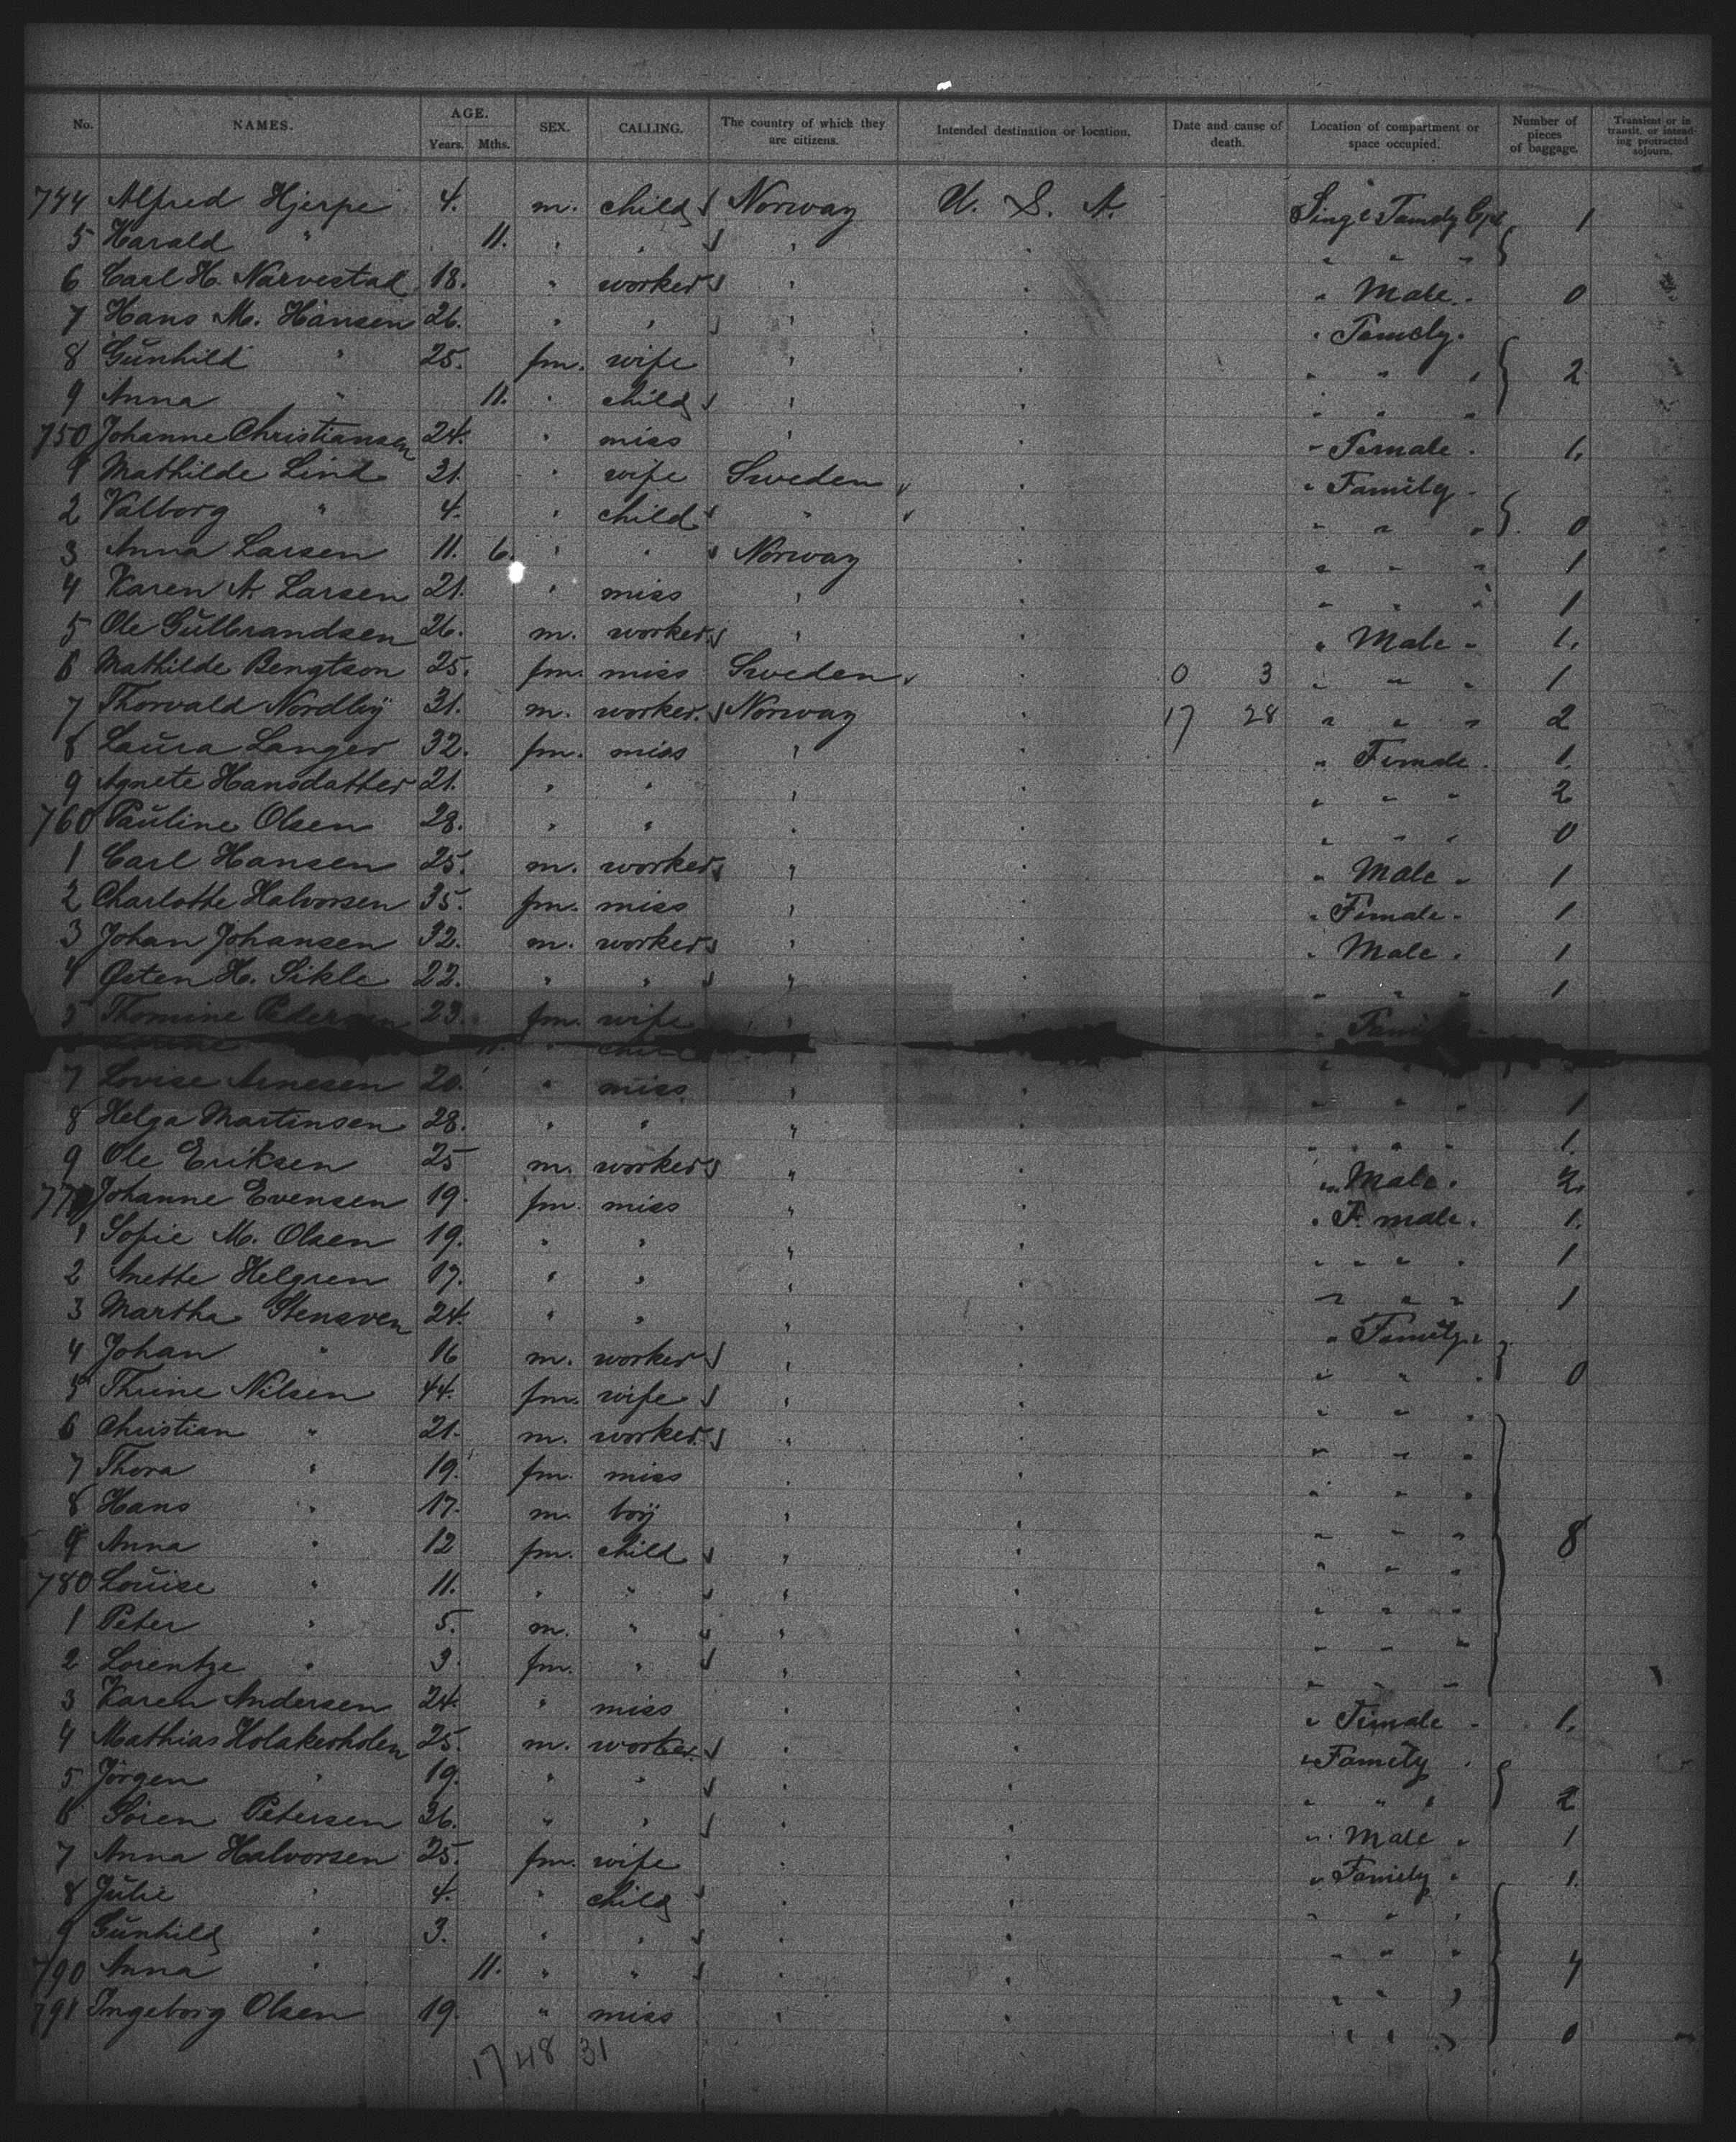 No. NAMES. AGE. Years. Mths. SEX. CALLING. The country of which they are citizens. Intended destination or location. Date and cause of death. Location of compartment or space occupied. Number of pieces of baggage. Transient or in transit, or intending protracted sojourn.
744 Alfred Hjerpe 4. m. child Norway U. S. A. Family 1
5 Harald " 11. " " " " " " "
6 Carl H. Narvestad 18. " worker " " " Male " 0
7 Hans M. Hansen 26. " " " " " Family "
8 Gunhild " 25. fm. wife " " " " " 2
9 Anna " 11. " child " " " " "
750 Johanne Christiansen 24. " miss " " " Female " 1.
1 Mathilde Lind 21. " wife Sweden " " Family "
2 Valborg " 4. " child " " " " " 0
3 Anna Larsen 11. 6. " " Norway " " " " 1
4 Karen A. Larsen 21. " miss " " " " " 1
5 Ole Gulbrandsen 26. m. worker " " " Male " 1.
6 Mathilde Bengtson 25. fm. miss Sweden " 0 3 " " " 1
7 Thorvald Nordby 31. m. worker. Norway " 17 28 " " " 2
8 Laura Langer 32. fm. miss " " " Female " 1.
9 Agnete Hansdatter 21. " " " " " " " 2
760 Pauline Olsen 28. " " " " " " " 0
1 Carl Hansen 25. m. worker " " " Male " 1
2 Charlotte Halvorsen 35. fm. miss " " " Female " 1
3 Johan Johansen 32. m. worker " " " Male " 1
4 Østen H. Sikle 22. " " " " " " " 1
5 Thomine Pedersen 23. fm. wife " " " Family "
11. " child "
7 Lovise Arnesen 20. " miss " " " " " 1
8 Helga Martinsen 28. " " " " " " " 1.
9 Ole Eriksen 25 m. worker " " " Male " 2.
770 Johanne Evensen 19. fm. miss " " " Female " 1.
1 Sofie M. Olsen 19. " " " " " " " 1
2 Anette Helgren 17. " " " " " " " 1
3 Martha Stensven 24. " " " " " Family "
4 Johan " 16 m. worker " " " " " 0
5 Thrine Nilsen 44. fm. wife " " " " "
6 Christian " 21. m. worker. " " " " "
7 Thora " 19. fm. miss " " " " "
8 Hans " 17. m. boy " " " " "
9 Anna " 12 fm. child " " " " " 8
780 Louise " 11. " " " " " " "
1 Peter " 5. m. " " " " " "
2 Lorentze " 3. fm. " " " " " "
3 Karen Andersen 24. " miss " " " Female " 1.
4 Mathias Holakerholen 25. m. worker. " " " Family "
5 Jörgen " 19. " " " " " " " 2
6 Sören Petersen 36. " " " " " Male " 1
7 Anna Halvorsen 25. fm. wife " " " Family " 1.
8 Julie " 4. " child " " " " "
9 Gunhild " 3. " " " " " " "
790 Anna " 11. " " " " " " " 4
791 Ingeborg Olsen 19. " miss " " " " " 0
17 48 31